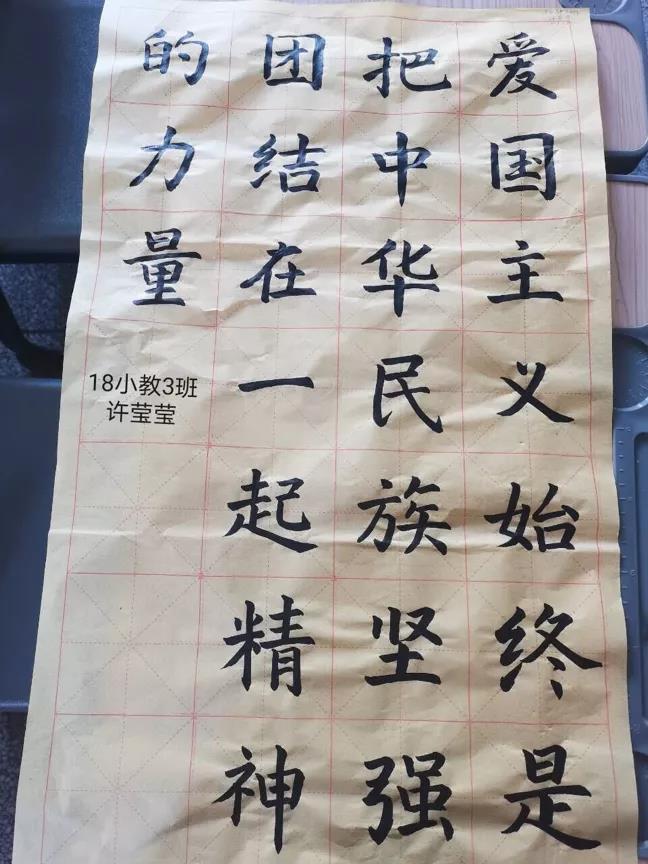 爱国主义始终是
把中华民族坚强
团结在一起精神
的力量
18小教3班
许莹莹